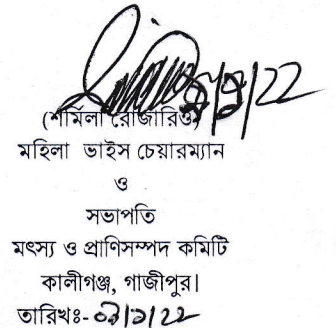 (শর্মিলা রোজারিও)
মহিলা ভাইস চেয়ারম্যান
ও
সভাপতি
মৎস্য ও প্রাণিসম্পদ কমিটি
কালীগঞ্জ, গাজীপুর।
তারিখঃ-